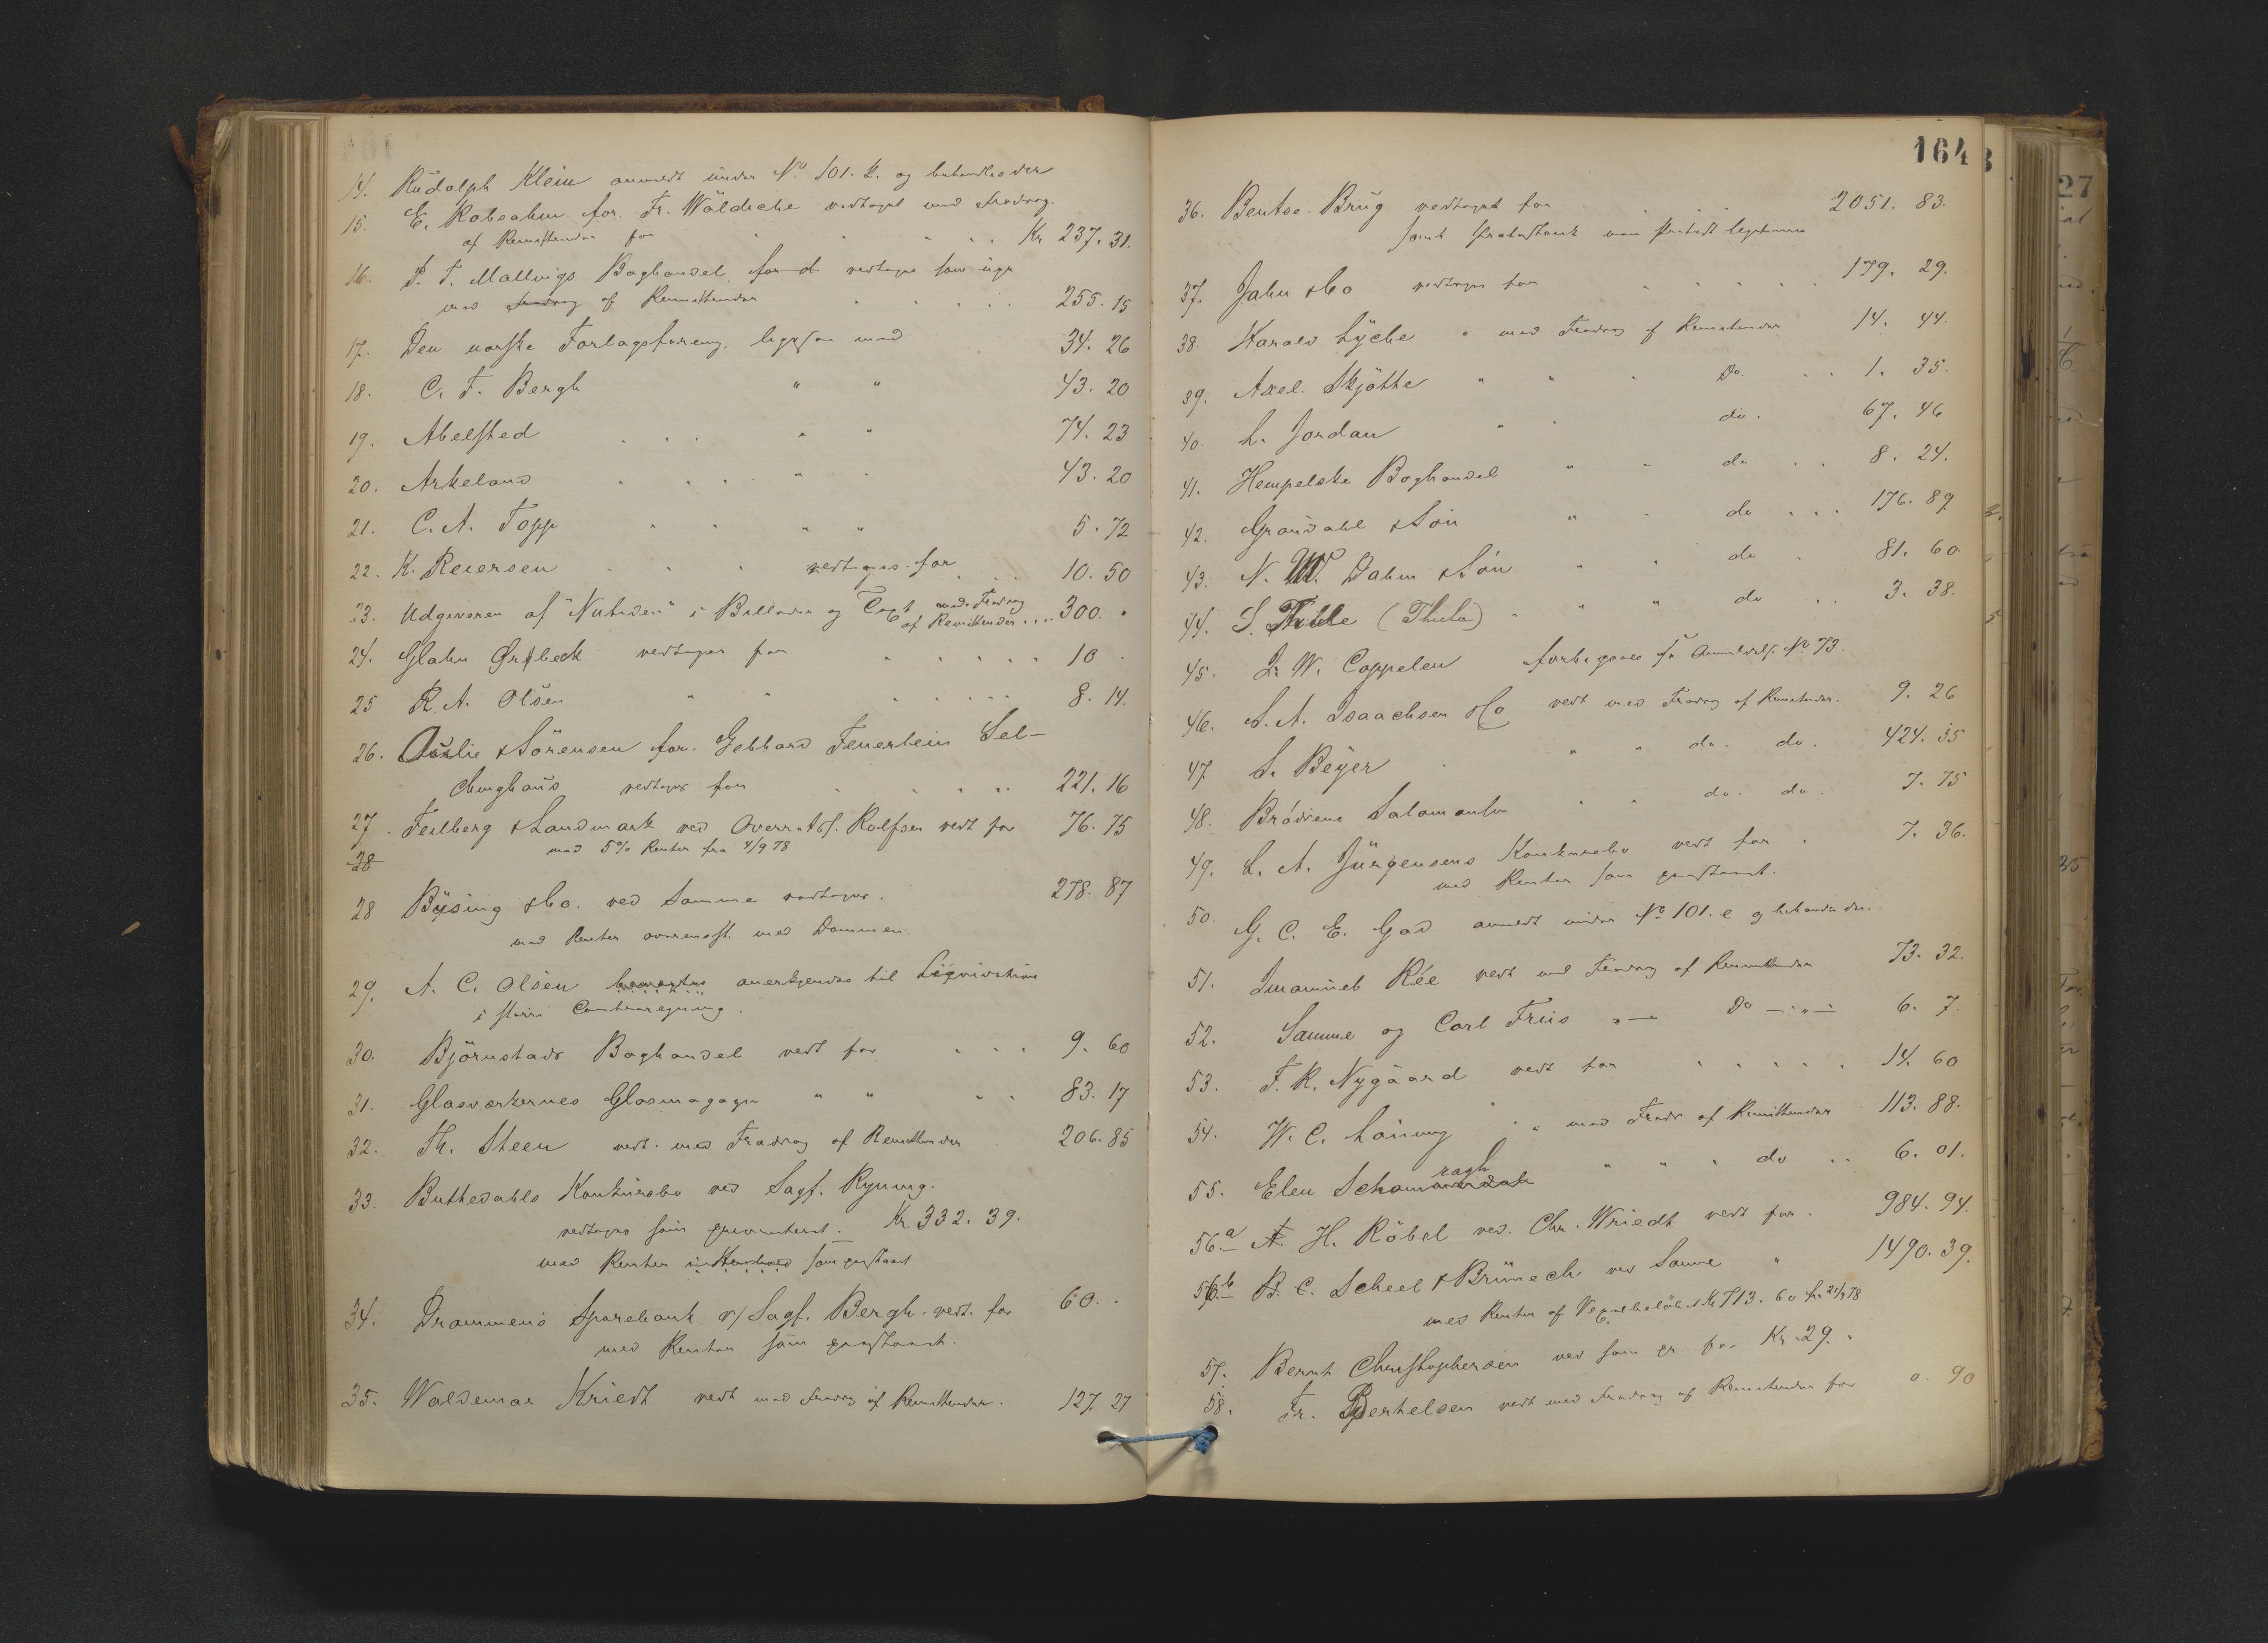 14. Rudolph Klein anmeldt under No 101. k. og behandles der
15. E. Robsahm for Fr. Wöldicke vedtaget med Fradrag
af Remittender for Kr 237. 31.
16. P. T. Mallings Boghandel for d vedtages som
med Fradrag af Remittender 255. 15
17. Den norske Forlagsforening. med 34. 26
18. C. F. Bergh " " 43. 20
19. Abelsted " " 74. 23
20. Arkeland " " 43. 20
21. C. A. Topp " " 5. 72
22. K. Reiersen vedtages for 10. 50
23. Udgiveren af "Nutiden" i Billeder og Text med Fradrag af Remittender 300. "
24. Glahn Grøbeck vedtages for 10.
25 R. A. Olsen " " 8. 14.
26. Aurlie & Sörensen for Gebhard Feuerlein Sel-
chinghaus vedtages for 221. 16
27. Feilberg & Landmark ved Overretssf. Rolfsen vedt for 76. 75
28 med 5% Renter fra 4/9 78
28 Büsing & Co. ved Samme vedtages. 278. 87
med Renter overensst. med Dommen.
29. A. C. Olsen bemærkes anerkjendes til Liqvidation
i större Contraregning.
30. Björnstads Boghandel vedt for 9. 60
31. Glasværkernes Glasmagazin " " 83. 17
32. Th. Steen vedt. med Fradrag af Remittender 206. 85
33. Buthedahls Konkursbo ved Sagf. Ryning.
vedtages som Kr 332. 39.
med Renter som paastaaet
34. Drammens Sparebank v/ Sagf. Bergh. vedt. for 60. "
med Renter som paastaaet.
35. Waldemar Kriedt vedt med Fradrag af Remittender. 127. 27
164
36. Bentse Brug vedtaget for 2051. 83.
samt
37. Jahn & Co vedtages for 179. 29.
38. Harald Lyche " med Fradrag af Remittender 14. 44.
39. Axel Skjötte " " Do. 1. 35.
40. L. Jordan " " do. 67. 46
41. Hempelske Boghandel " " do 8. 24.
42. Gröndahl & Sön " " do 176. 89
43. N. W. Dahm & Sön " " do 81. 60.
44. S. Thille (Thiele) " " do 3. 38.
45. J. W. Cappelen forbigaaes fr Anmeldelse No 73.
46. S. A. Isaachsen & Co vedt med Fradrag af Remittender. 9. 26
47 F. Beyer " " do. do. 424. 35
48. Brødrene Salomonsen " " do. do. 7. 75
49. L. A. Jürgensens Konkursbo vedt for 7. 36.
med Renter som paastaaet.
50. G. C. E. Gad anmeldt under No 101. e og behandles der.
51. Imanuel Rée vedt med Fradrag af Remittender 73. 32.
52. Samme og Carl Friis " — Do — " — 6. 7
53. F. R. Nygaard vedt for 14. 60
54. W. C. Lönning " med Fradr af Remittender 113. 88.
55. Elen Schamragh " " do 6. 01.
56.a A. H. Röbel ved. Chr. Wriedt vedt for. 984. 94.
56.b B. C. Scheel & Brünech ved Samme " 1490. 39.
med Renter af Vexelbeløbet Kr 713. 60 fr. 21/9 78
57. Bernt Christophersen ved for Kr. 29. "
58. Fr. Bertelsen vedt med Fradrag af Remittender for 0. 90
27